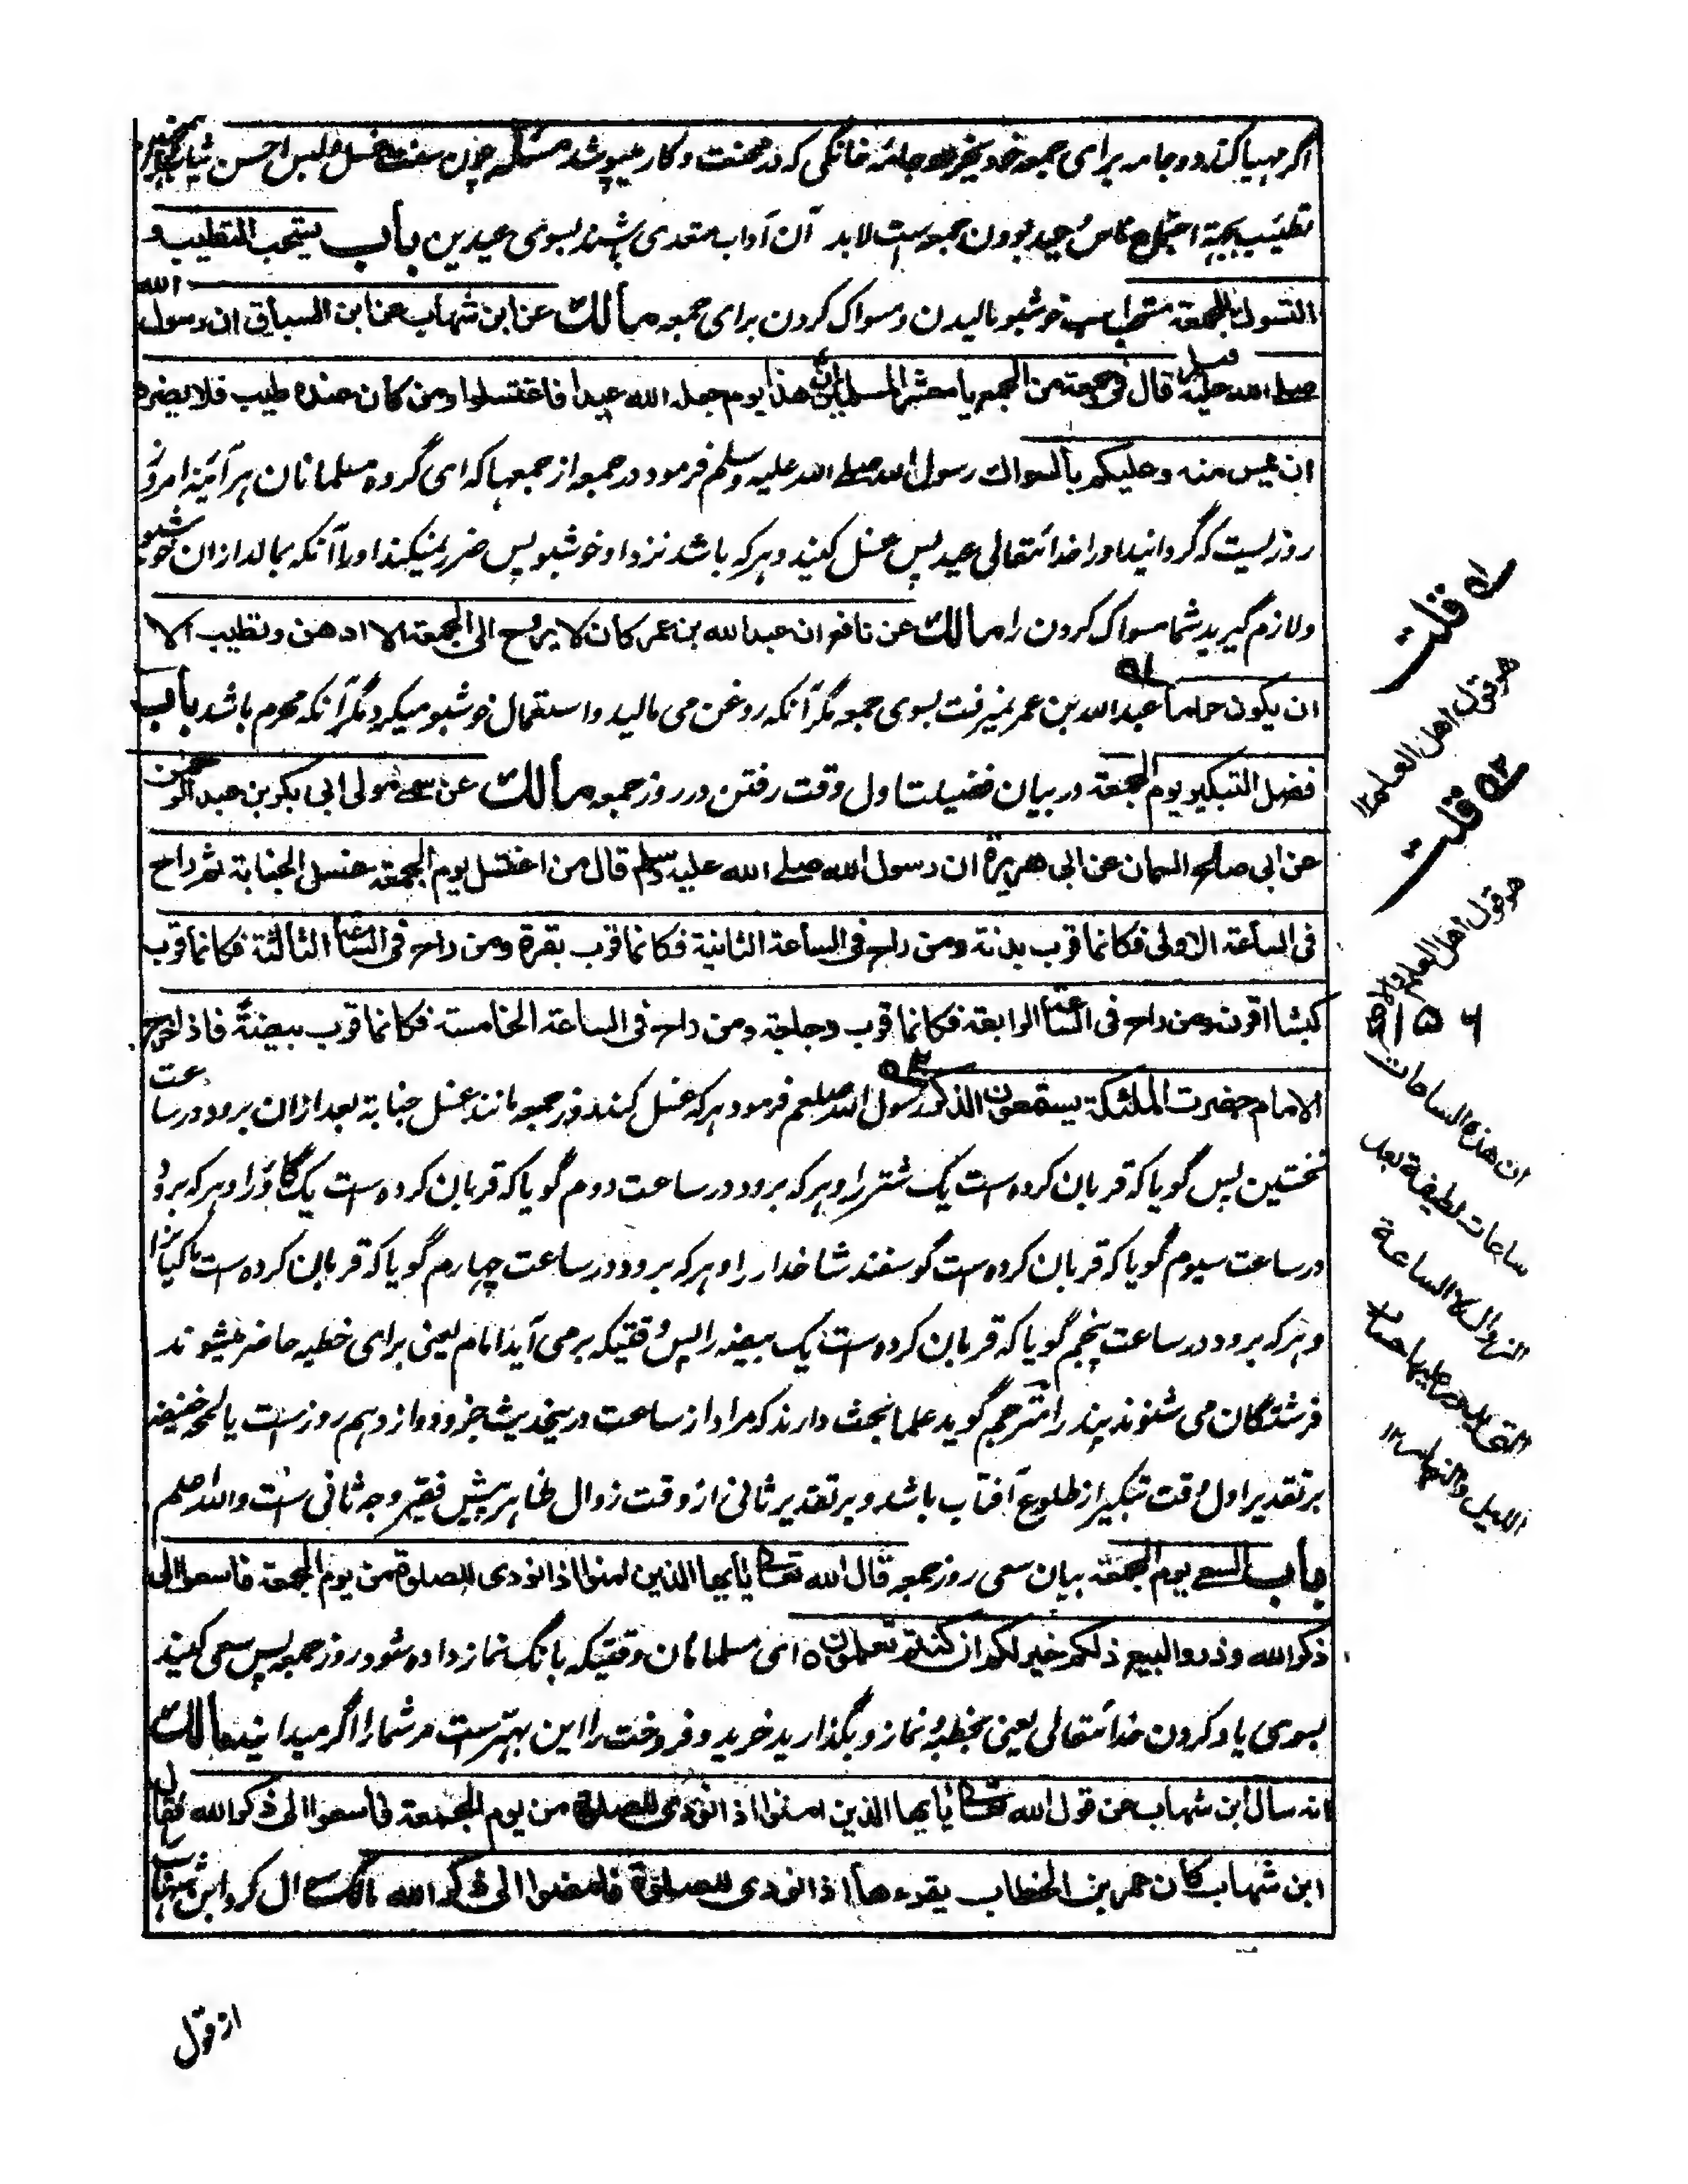 اگر مهیا کند دو جامه برای جمعه خود بجز دو جامه خانگی که در محنت و کار میپوشد مسئله چون سنت غسل و لبس احسن ثیاب
تطییب بجهة اجتماع ناس و عید بودن جمعه است لابد آن آداب متعدی باشند بسوی عیدین باب یستحب التطییب و
التسوك للجمعة مستحب است خوشبو مالیدن و مسواک کردن برای جمعه مالك عن ابن شهاب عن ابن السباق ان رسول الله
صلی الله علیه وسلم قال فی جمعة من الجمع یا معشر المسلمین ان هذا یوم جعله الله عیدا فاغتسلوا ومن کان عنده طیب فلا یضره
ان یمس منه وعلیکم بالسواك رسول الله صلی الله علیه وسلم فرمود در جمعه از جمعها که ای گروه مسلمانان هر آئینه امروز
روزیست که گردانید او را خدا تعالی عید پس غسل کنید و هر که باشد نزد او خوشبو پس ضرر نمیکند او را آنکه بمالد ازان خوشبو
ولازم گیرید شما مسواک کردن را مالك عن نافع ان عبد الله بن عمر کان لا یروح الی الجمعة الا ادهن وتطیب الا
ان یکون حراما عبد الله بن عمر نمیرفت بسوی جمعه مگر آنکه روغن می مالید و استعمال خوشبو میکرد مگر آنکه محرم باشد باب
فضل التبکیر یوم الجمعة در بیان فضیلت اول وقت رفتن در روز جمعه مالك عن سمی مولی ابی بکر بن عبد الرحمن
عن ابی صالح السمان عن ابی هریرة ان رسول الله صلی الله علیه وسلم قال من اغتسل یوم الجمعة غسل الجنابة ثم راح
فی الساعة الاولی فکانما قرب بدنة ومن راح فی الساعة الثانیة فکانما قرب بقرة ومن راح فی الساعة الثالثة فکانما قرب
کبشا اقرن ومن راح فی الساعة الرابعة فکانما قرب دجاجة ومن راح فی الساعة الخامسة فکانما قرب بیضة فاذا خرج
الامام حضرت الملئکة یستمعون الذکر رسول الله صلعم فرمود هر که غسل کند روز جمعه مانند غسل جنابة بعد ازان برود در ساعت
نخستین پس گویا که قربان کرده است یک شتر را و هر که برود در ساعت دوم گویا که قربان کرده است یک گاؤ را و هر که برود
در ساعت سیوم گویا که قربان کرده است گوسفند شاخدار را و هر که برود در ساعت چهارم گویا که قربان کرده است ماکیان را
و هر که برود در ساعت پنجم گویا که قربان کرده است یک بیضه را پس وقتیکه برمی آید امام یعنی برای خطبه حاضر میشوند
فرشتگان می شنوند پند را مترجم گوید علما بحث دارند که مراد از ساعت درینحدیث جزو دوازدهم روز است یا لمحه خفیفه
بر تقدیر اول وقت تبکیر از طلوع آفتاب باشد و بر تقدیر ثانی از وقت زوال ظاهر پیش فقیر وجه ثانی است والله اعلم
باب السعی یوم الجمعة بیان سعی روز جمعه قال الله تعالی یا ایها الذین امنوا اذا نودی للصلوة من یوم الجمعة فاسعوا الی
ذکر الله وذروا البیع ذلکم خیر لکم ان کنتم تعلمون ه ای مسلمانان وقتیکه بانگ نماز داده شود روز جمعه پس سعی کنید
بسوی یاد کردن خدا تعالی یعنی بخطبه و نماز و بگذارید خرید و فروخت را این بهتر است مر شما را اگر میدانید مالك
انه سال ابن شهاب عن قول الله تعالی یا ایها الذین امنوا اذا نودی للصلوة من یوم الجمعة فاسعوا الی ذکر الله فقال
ابن شهاب کان عمر بن الخطاب یقرءها اذا نودی للصلوة فامضوا الی ذکر الله مالک سوال کرد ابن شهاب
از قول
۵۱ قلت
هو قول اهل العلم ۱۲
۵۲ قلت
هو قول اهل العلم
ان هذه الساعات
ساعات لطیفة بعد
الزوال لا الساعة
التی یدور علیها حساب
اللیل والنهار ۱۲